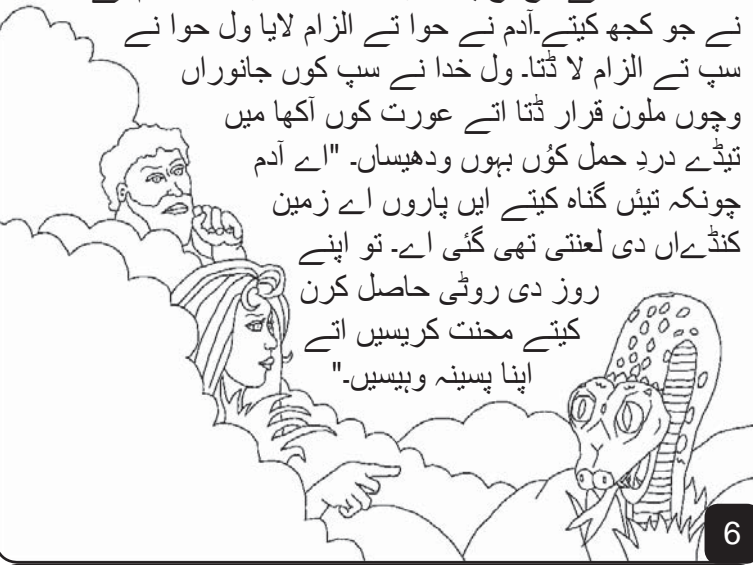 نے جو کجھ کیتے۔آدم نے حوا تے الزام لایا ول حوا نے
سپ تے الزام لا ڈتا۔ ول خدا نے سپ کوں جانوراں
وچوں ملون قرار ڈتا اتے عورت کوں آکھا میں
تیڈے دردِ حمل کوُں بہوں ودھیساں۔ "اے آدم
چونکہ تیئں گناہ کیتے ایں پاروں اے زمین
کنڈےاں دی لعنتی تھی گئی اے۔ تو اپنے
روز دی روٹی حاصل کرن
کیتے محنت کریسیں اتے
اپنا پسینہ وہیسیں۔"
6